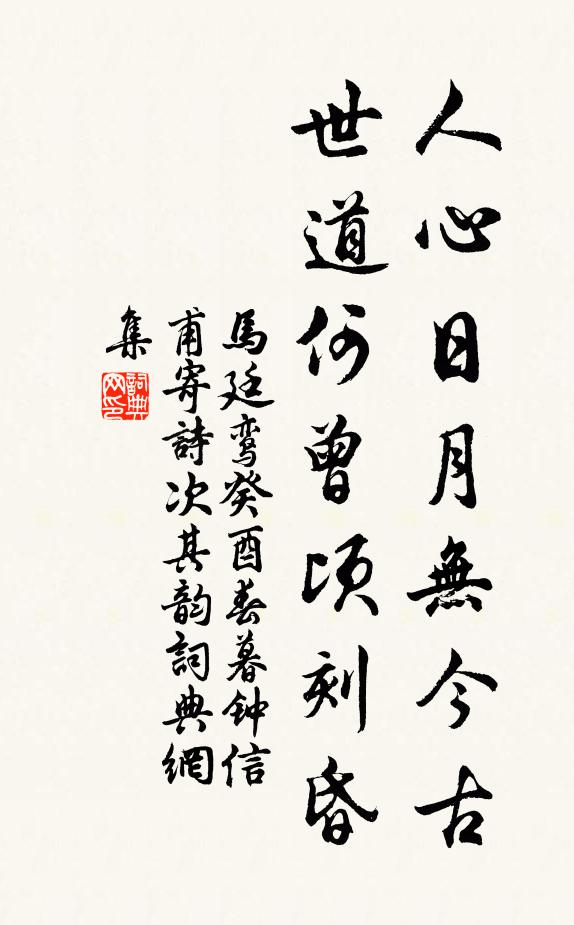 人心日月無今古
世道何曾頃刻昏
馬廷鸞癸酉春暮钟信
甫寄詩次其韵詞典網
集
詞典
网印